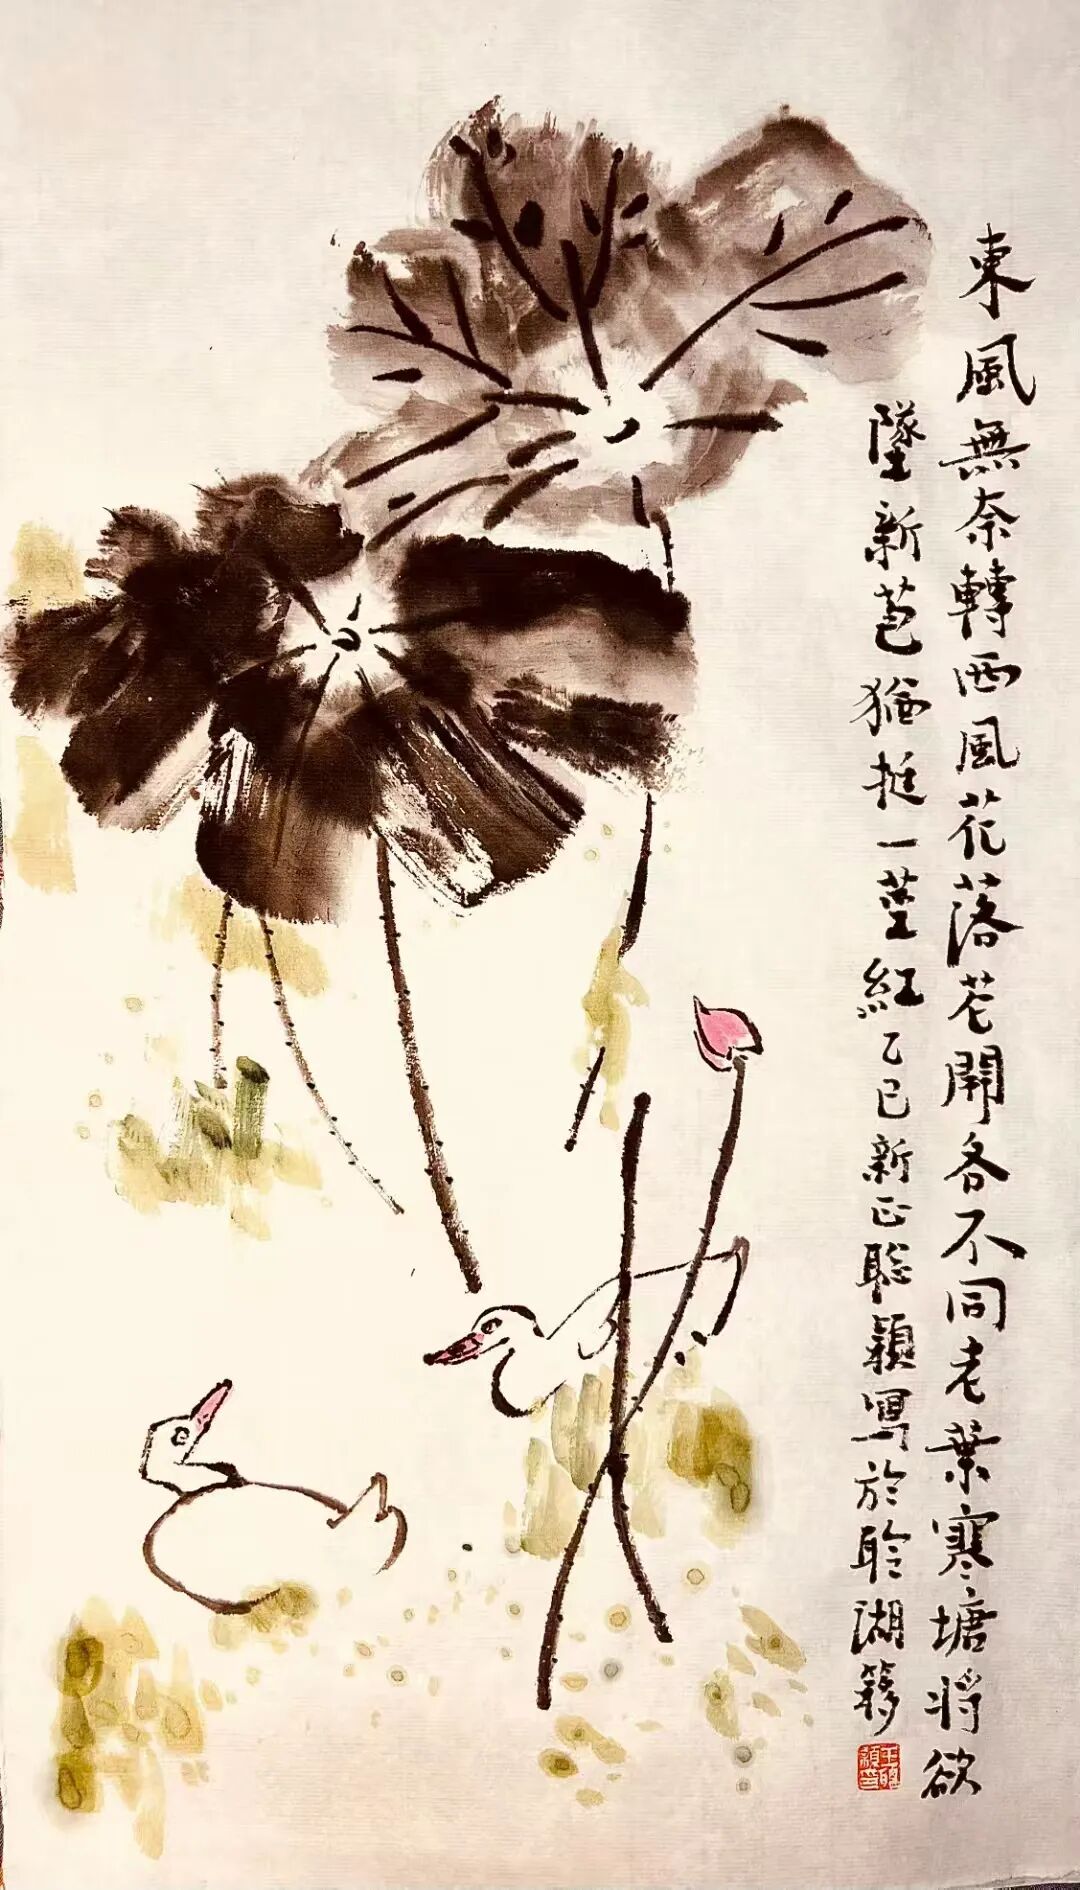 東風無奈轉西風花落花開各不同老葉寒塘將欲
墜新苞猶挺一莖紅乙巳新正聡穎寫於聆湖簃